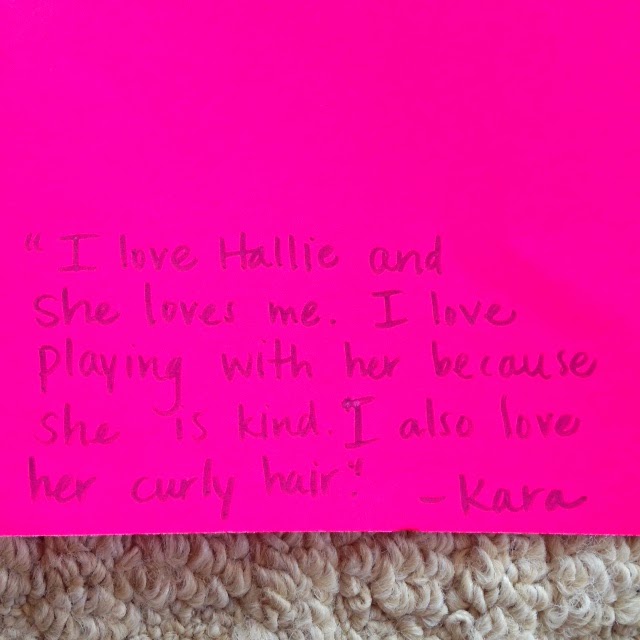 "I love Hallie and
She loves me. I love
playing with her because
she is kind. I also love
her curly hair."
- Kara